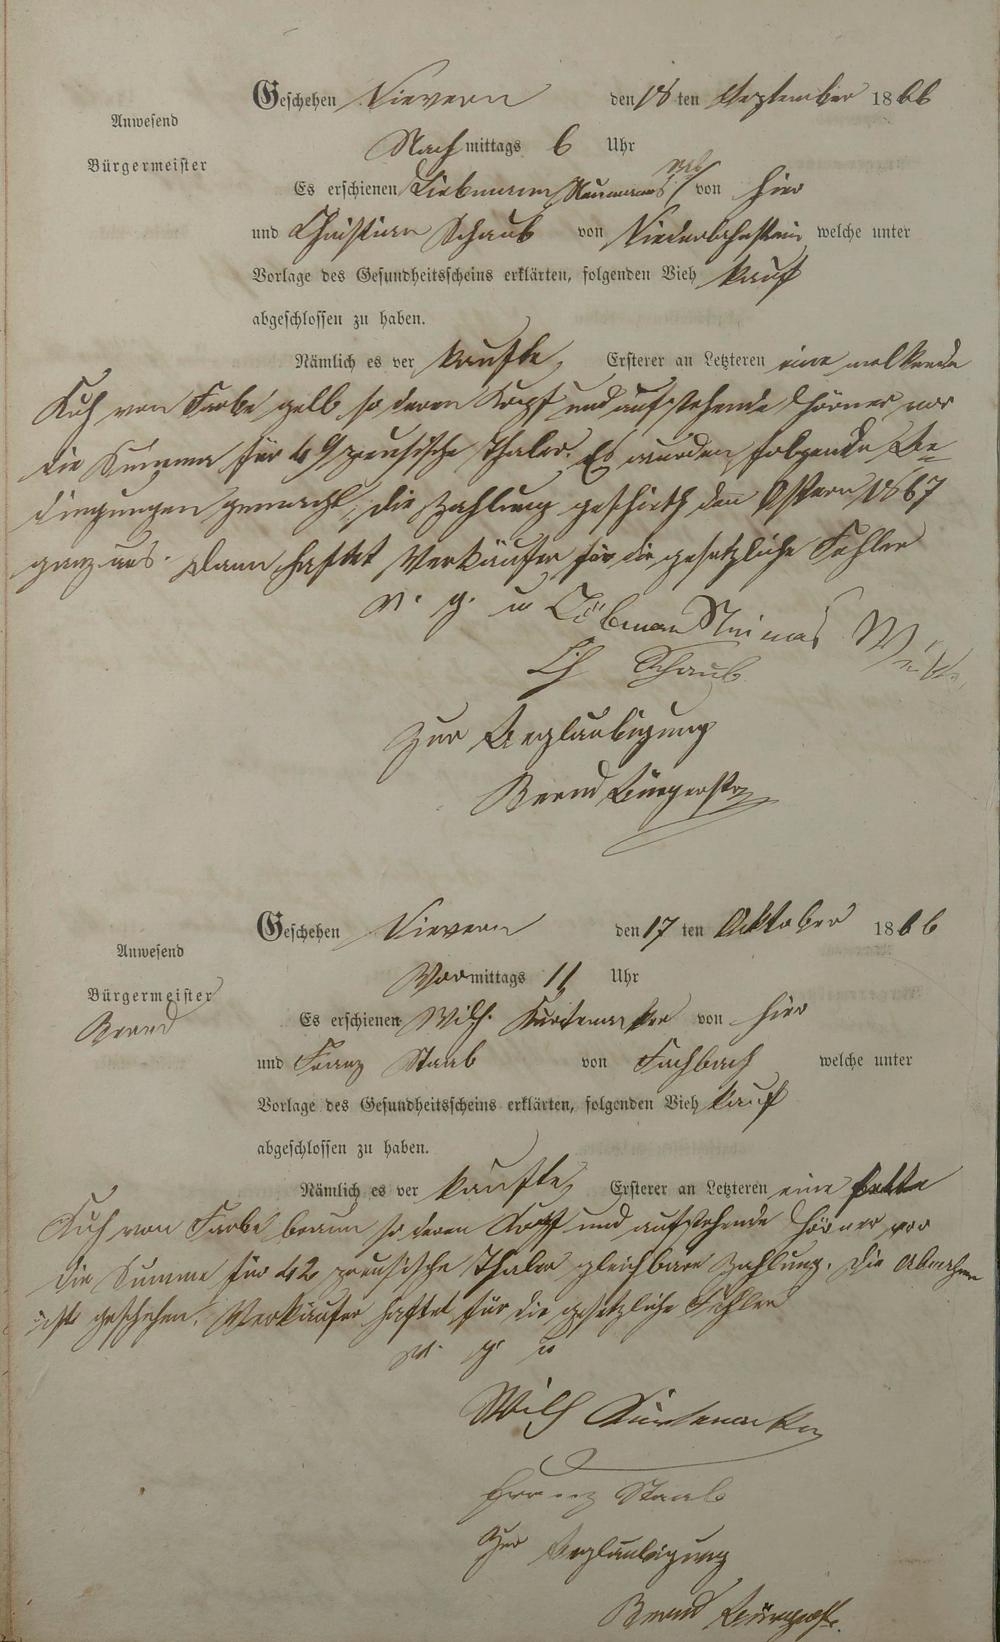 Geschehen Nievern den 18 ten September 1866
Anwesend
Nachmittags 6 Uhr
Bürgermeister
Es erschienen Liebmann Neumanns von hier
und Christian Schaub von Niederlahnstein welche unter
Vorlage des Gesundheitsscheins erklärten, folgenden Vieh kauf
abgeschlossen zu haben.
Nämlich es ver kaufte, Ersterer an Letzteren eine melkende
Kuh von Farbe gelb so deren Kopf und aufstehende Hörner vor
die Summa für 49 preusische Thaler. Es wurden folgende Be=
dingungen gemacht, die Zahlung geschieht den Ostern 1867
ganz aus. Dann haftet Verkäufer für die gesetzliche Fehler
v. g. u Löbman Neimas
Ch Schaub
Zur Beglaubigung
Bernd Bürgerstr
Geschehen Nievern den 17 ten Oktober 1866
Anwesend
Vormittags 11 Uhr
Bürgermeister
Bernd
Es erschienen Wilh. von hier
und Franz Staab von Fachbach welche unter
Vorlage des Gesundheitsscheins erklärten, folgenden Vieh kauf
abgeschlossen zu haben.
Nämlich es ver kaufte, Ersterer an Letzteren eine fette
Kuh von Farbe braun so deren Kopf und aufstehende Hörner vor
die Summe für 42 preusische Thaler gleichbare Zahlung. Die Abnahme
ist geschehen. Verkäufer haftet für die gesetzliche Fehler
v. g. u
Wilh
Franz Staab
Zur Beglaubigung
Bernd Bürgerstr.